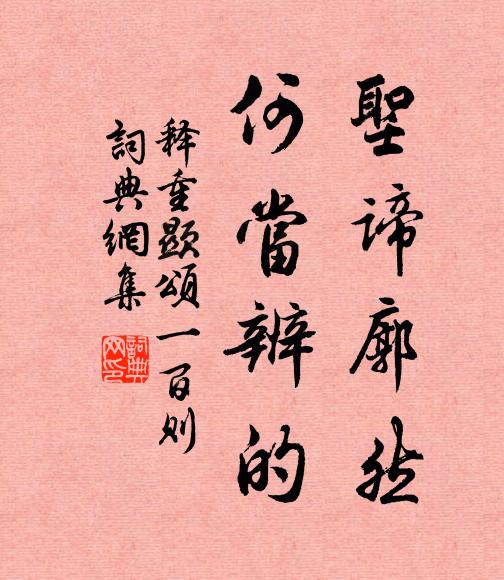 聖諦廓然
何當辨的
释重顯頌一百则
詞典網集
詞典網印